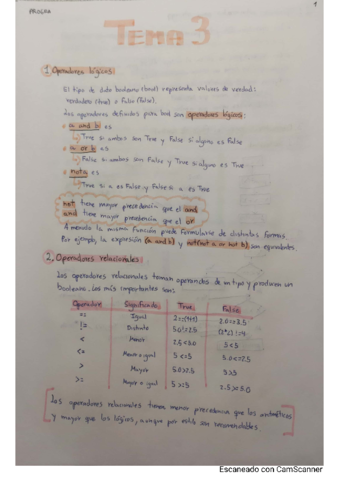 PROGRA
1
Tema 3
1. Operadores lógicos:
El tipo de dato booleano (bool) representa valores de verdad:
verdadero (true) o Falso (false).
Los operadores definidos para bool son operadores lógicos:
a and b es
True si ambos son True y False si alguno es False
a or b es
False si ambos son False y True si alguno es True
not a es
True si a es False y False si a es True
not tiene mayor precedencia que el and
and tiene mayor precedencia que el or
A menudo la misma función puede formularse de distintas formas
Por ejemplo, la expresión (a and b) y not(not a or not b), son equivalentes.
2. Operadores relacionales:
Los operadores relacionales toman operandos de un tipo y producen un
booleano. Los más importantes son:
Operador Significado True False
== Igual 2==(1+1) 2.0==2.5
!= Distinto 5.0!=2.5
< Menor 5<5
<= Menor o igual 5<=5 5.0<=2.5
> Mayor 5.0>2.5 5>5
>= Mayor o igual 5>=5 2.5>=5.0
Los operadores relacionales tienen menor precedencia que los aritméticos
y mayor que los lógicos, aunque por esto son recomendables
Escaneado con CamScanner